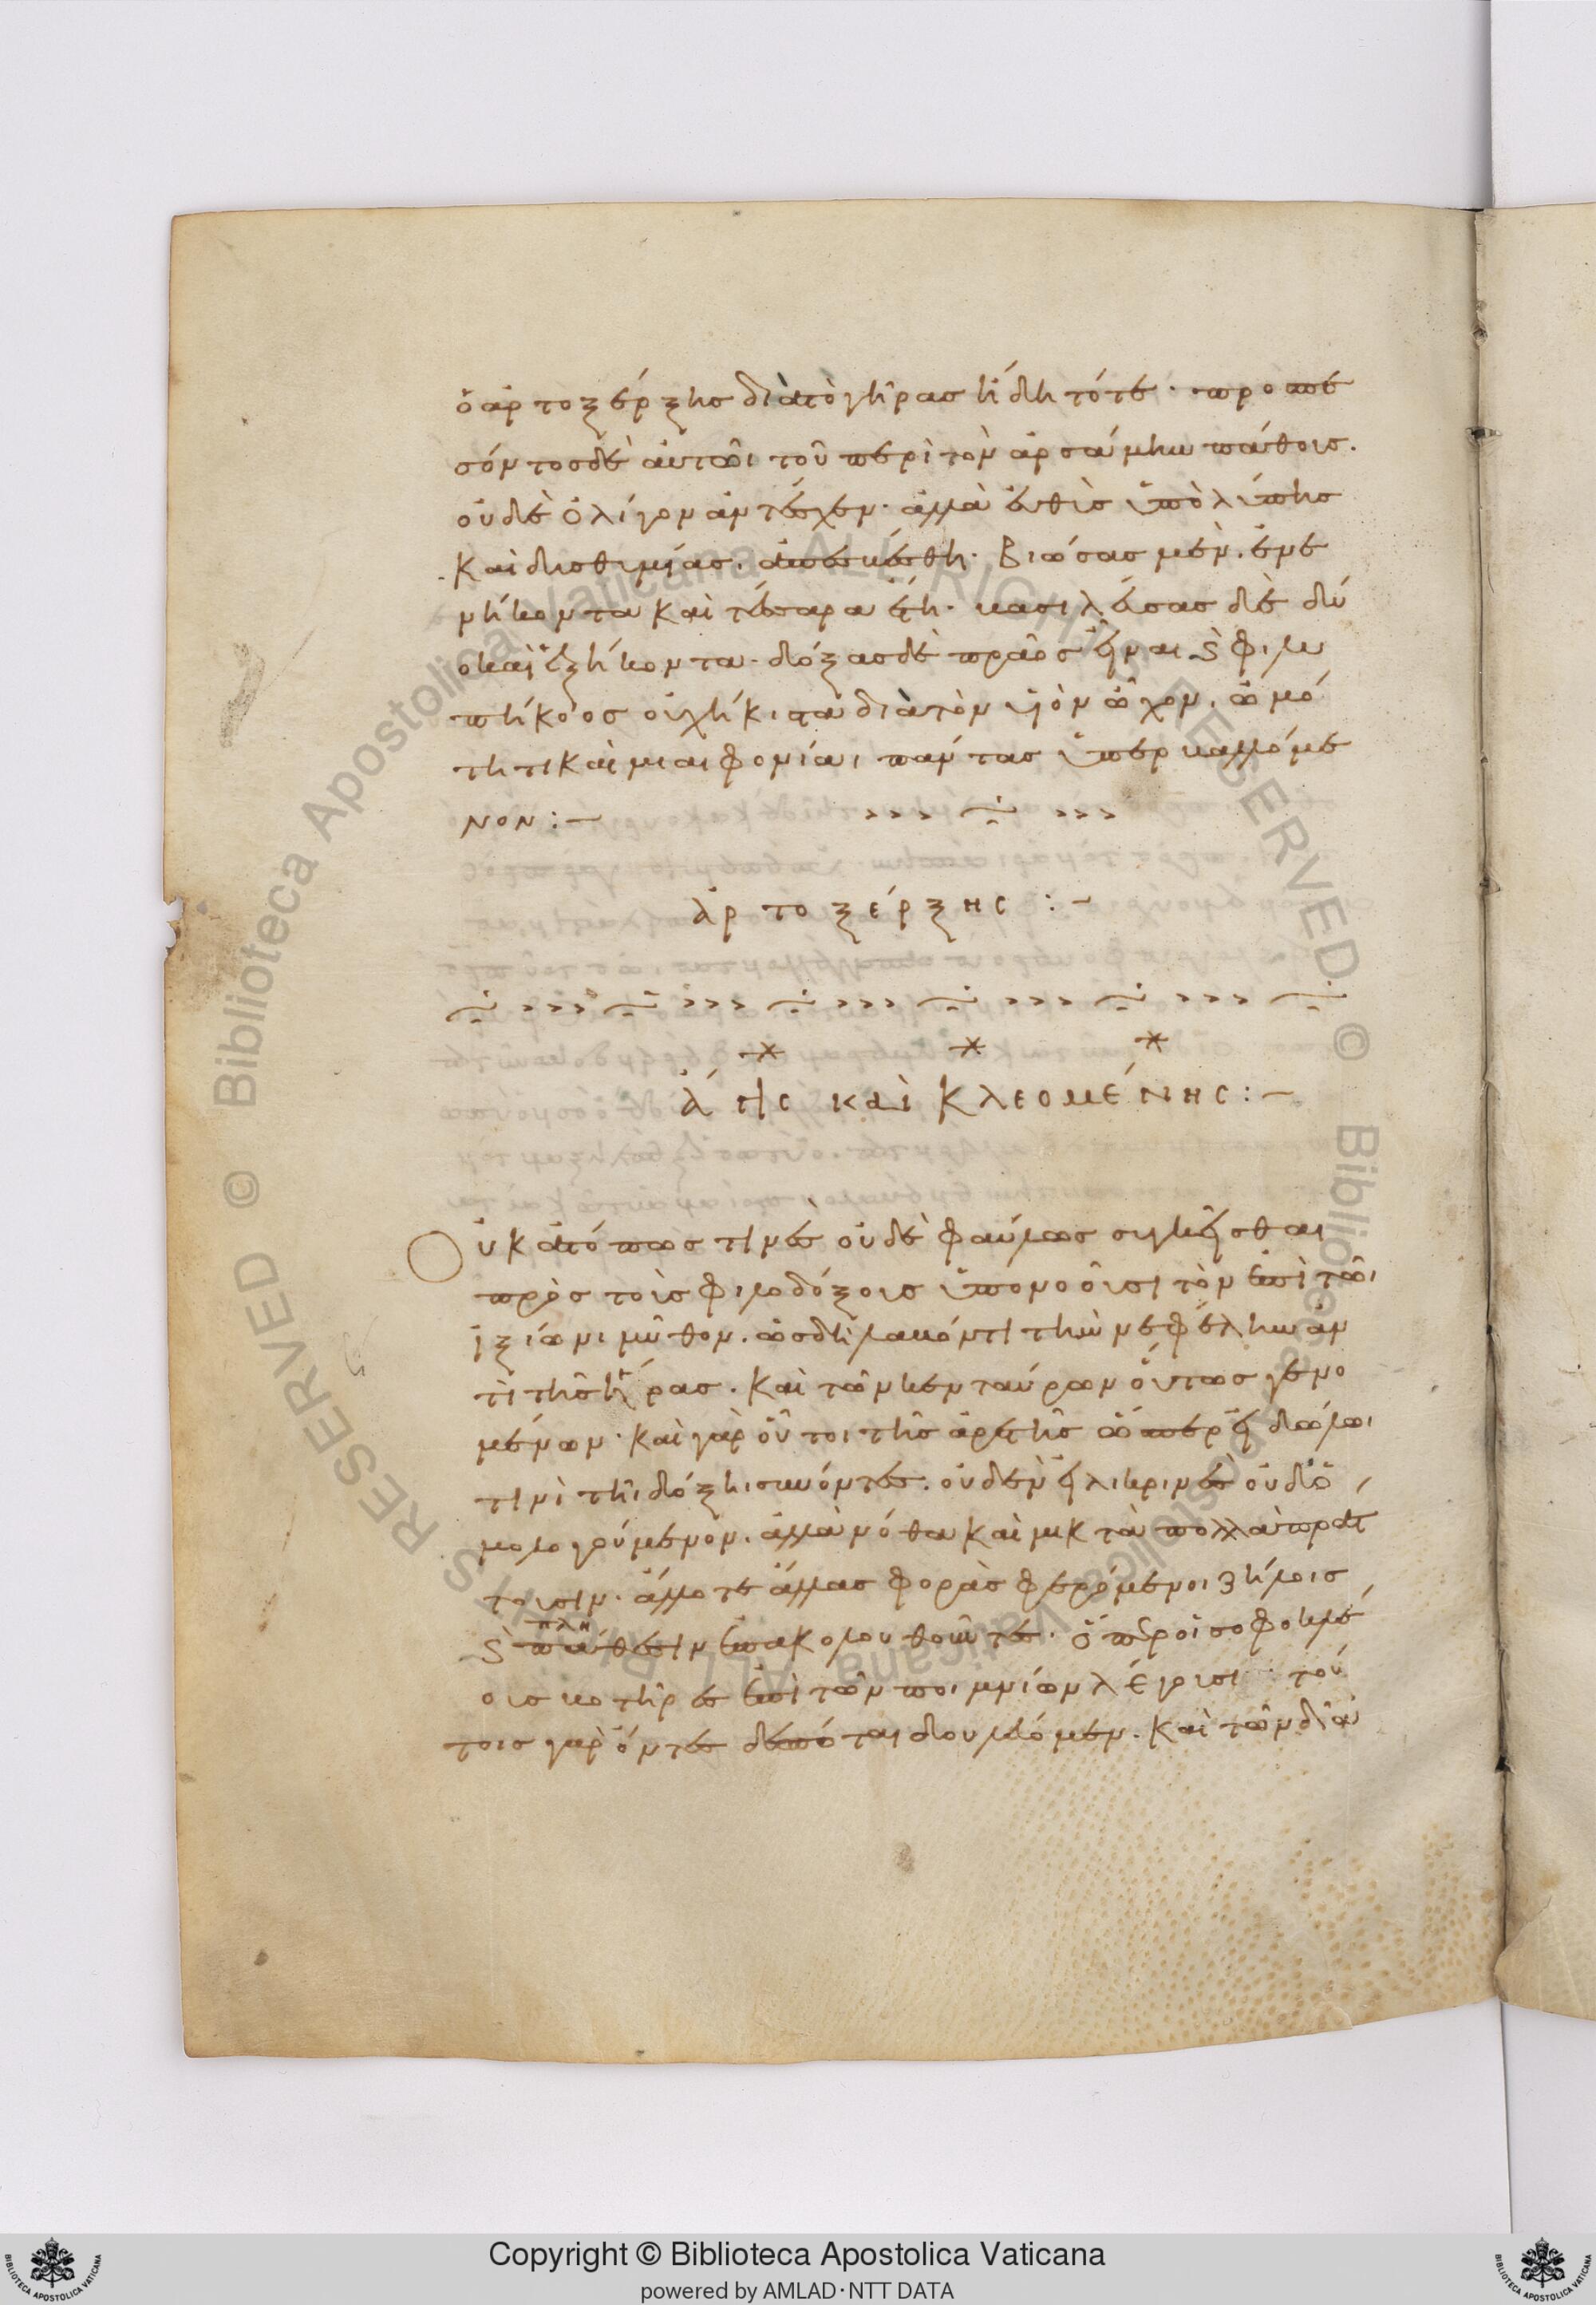 ὁ ἀρτοξέρξης διὰ τὸ γῆρας ἤδη τότε· προσπε
σόντος δὲ αὐτῶι τοῦ περὶ τὸν ἀρσάμην πάθους.
οὐδὲ ὀλίγον ἀντέσχεν· ἀλλὰ εὐθὺς ὑπὸ λύπης
καὶ δυσθυμίας. ἀπεσβέσθη· βιώσας μὲν. ἐνε
νήκοντα καὶ τέσσαρα ἔτη· βασιλεύσας δὲ δύ
ο καὶ ἑξήκοντα· δόξας δὲ πρᾶος εἶναι ϗ φιλυ
πήκοος οὐχ ἥκιστα διὰ τὸν υἱὸν ὦχον. ὠμό
τητι καὶ μιαιφονίαι πάντας ὑπερβαλλόμε
νον:–
ἀρτοξέρξης:–
ἄγις καὶ κλεομένης:–
Οὐκ ἀτόπως τινὲς οὐδὲ φαύλως συγκεῖσθαι
πρὸς τοὺς φιλοδόξους ὑπονοοῦσι τὸν ἐπὶ τῶι
ἰξίωνι μῦθον. ὡς δὴ λαβόντι τὴν νεφέλην ἀν
τὶ τῆς ἥρας. καὶ τῶν κενταύρων οὕτως γενο
μένων· καὶ γὰρ οὗτοι τῆς ἀρετῆς ὥσπερ εἰδώλωι
τινὶ τῆι δόξηι συνόντες. οὐδὲν εἰλικρινὲς οὐδ' ὁ
μολογούμενον. ἀλλὰ νόθα καὶ μικτὰ πολλὰ πράτ
τουσιν· ἄλλοτε ἄλλας φορὰς φερόμενοι ζήλοις
ϗ πάθεσιν ἐπακολουθοῦντες· ὅπερ οἱ σοφοκλέ
ους βοτῆρες ἐπὶ τῶν ποιμνίων λέγουσι· τού
τοις γὰρ ὄντες δεσπόται δουλεύομεν. καὶ τῶνδ' ἀ
Copyright © Biblioteca Apostolica Vaticana
powered by AMLAD·NTT DATA